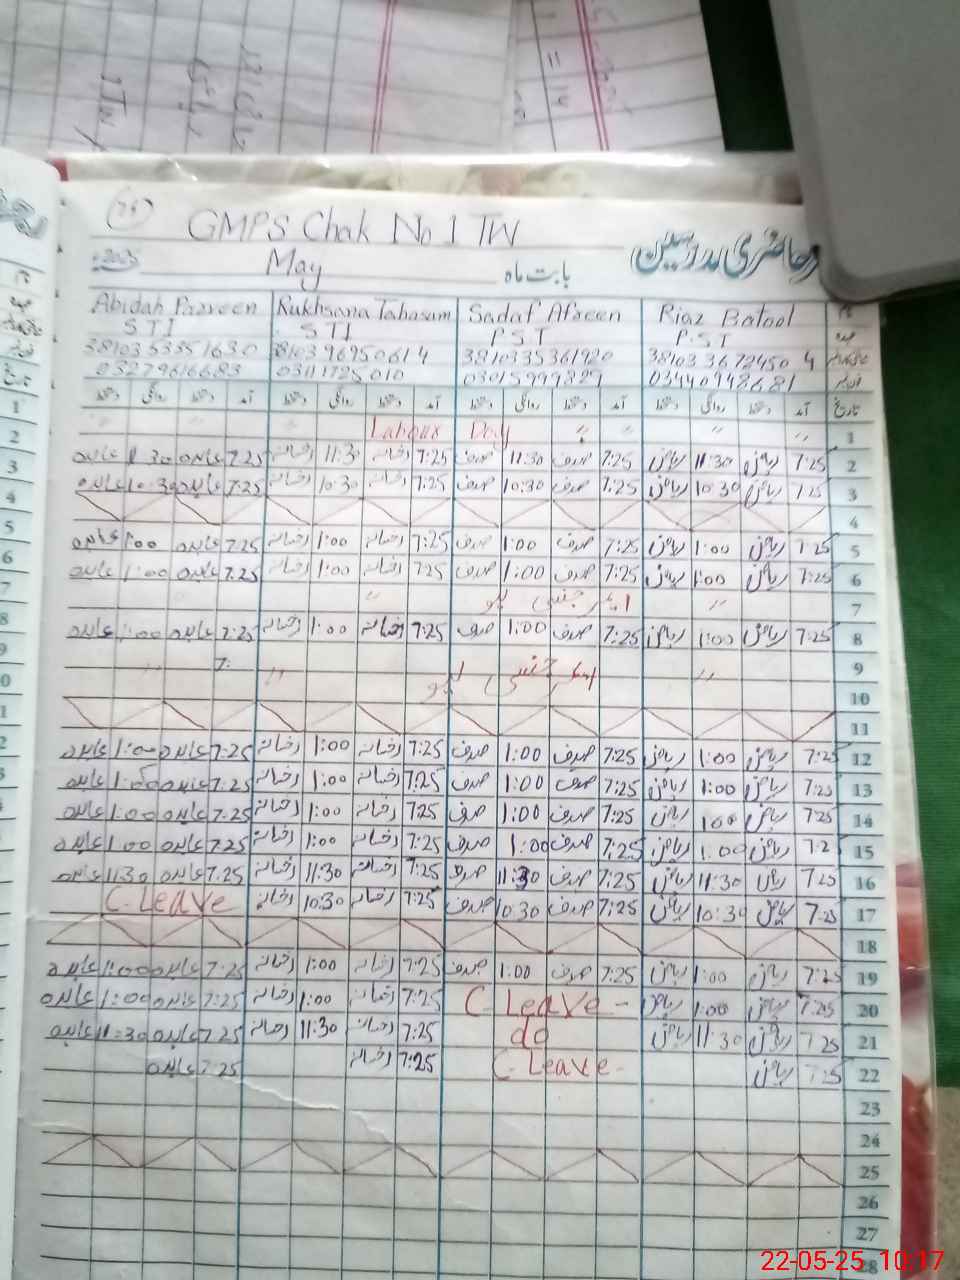 GMPS Chak No 1 TW
حاضری مدرسین
May بابت ماہ
Abidah Parveen Rukhsana Tabasum Sadaf Afreen Riaz Batool
STI STI PST P.ST
03015999829 03440948681
تاریخ آمد دستخط روانگی دستخط آمد دستخط روانگی دستخط آمد دستخط روانگی دستخط آمد دستخط روانگی دستخط
1 Labour Day
2 7:25 ریاض 11:30 ریاض 7:25 صدف 11:30 صدف 7:25 رخسانہ 11:30 رخسانہ 7:25 عابدہ 11:30 عابدہ
3 7:25 ریاض 10:30 ریاض 7:25 صدف 10:30 صدف 7:25 رخسانہ 10:30 رخسانہ 7:25 عابدہ 10:30 عابدہ
4
5 7:25 ریاض 1:00 ریاض 7:25 صدف 1:00 صدف 7:25 رخسانہ 1:00 رخسانہ 7:25 عابدہ 1:00 عابدہ
6 7:25 ریاض 1:00 ریاض 7:25 صدف 1:00 صدف 7:25 رخسانہ 1:00 رخسانہ 7:25 عابدہ 1:00 عابدہ
7 ایمرجنسی لیو
8 7:25 ریاض 1:00 ریاض 7:25 صدف 1:00 صدف 7:25 رخسانہ 1:00 رخسانہ 7:25 عابدہ 1:00 عابدہ
9 ایمرجنسی لیو 7:
10
11
12 7:25 ریاض 1:00 ریاض 7:25 صدف 1:00 صدف 7:25 رخسانہ 1:00 رخسانہ 7:25 عابدہ 1:00 عابدہ
13 7:25 ریاض 1:00 ریاض 7:25 صدف 1:00 صدف 7:25 رخسانہ 1:00 رخسانہ 7:25 عابدہ 1:00 عابدہ
14 7:25 ریاض 1:00 ریاض 7:25 صدف 1:00 صدف 7:25 رخسانہ 1:00 رخسانہ 7:25 عابدہ 1:00 عابدہ
15 7:2 ریاض 1:00 ریاض 7:25 صدف 1:00 صدف 7:25 رخسانہ 1:00 رخسانہ 7:25 عابدہ 1:00 عابدہ
16 7:25 ریاض 11:30 ریاض 7:25 صدف 11:30 صدف 7:25 رخسانہ 11:30 رخسانہ 7:25 عابدہ 11:30 عابدہ
17 7:25 ریاض 10:30 ریاض 7:25 صدف 10:30 صدف 7:25 رخسانہ 10:30 رخسانہ C.Leave
18
19 7:25 ریاض 1:00 ریاض 7:25 صدف 1:00 صدف 7:25 رخسانہ 1:00 رخسانہ 7:25 عابدہ 1:00 عابدہ
20 7:25 ریاض 1:00 ریاض C.Leave - 7:25 رخسانہ 1:00 رخسانہ 7:25 عابدہ 1:00 عابدہ
21 7:25 ریاض 11:30 ریاض do 7:25 رخسانہ 11:30 رخسانہ 7:25 عابدہ 11:30 عابدہ
22 7:25 ریاض C.Leave - 7:25 رخسانہ 7:25 عابدہ
23
24
25
26
27
28
22-05-25 10:17